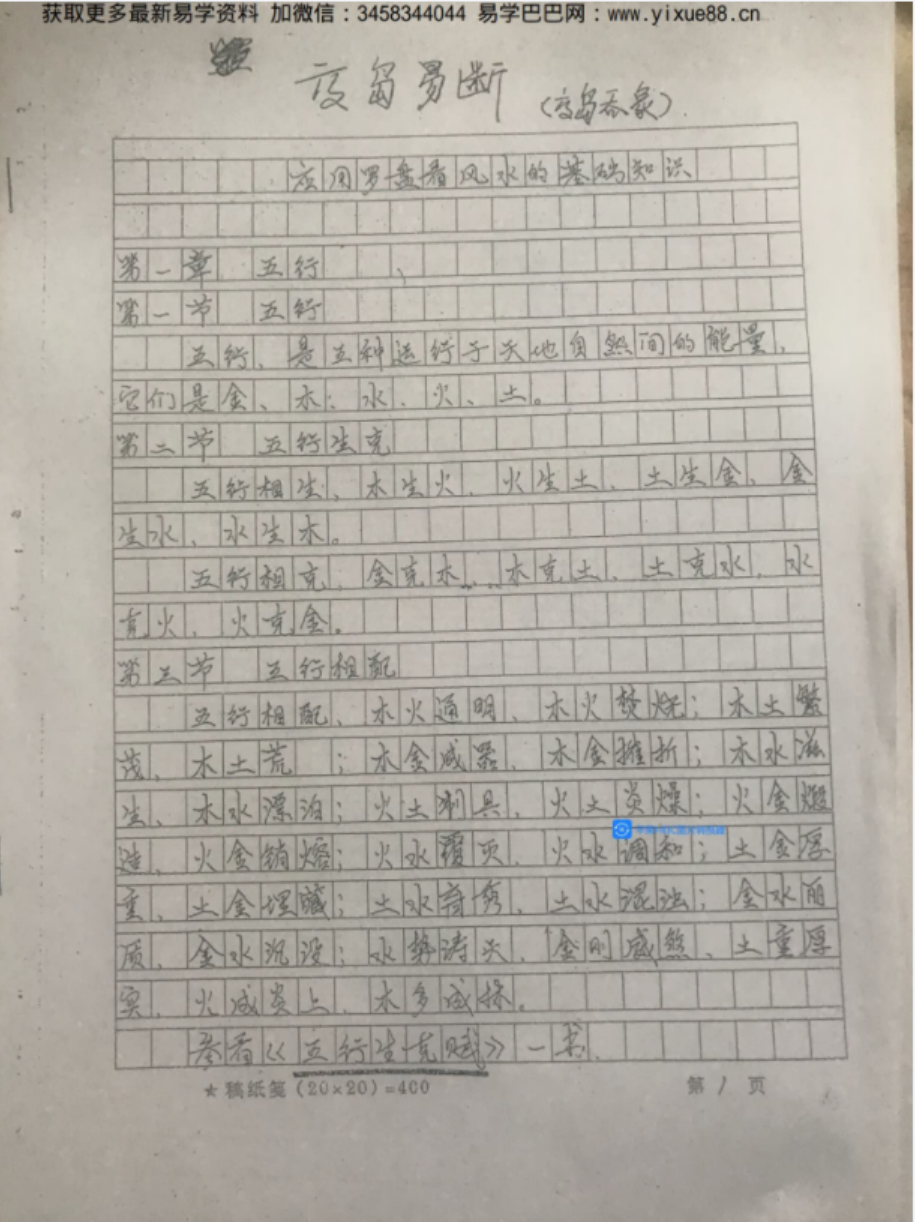 获取更多最新易学资料 加微信：3458344044 易学巴巴网：www.yixue88.cn
高岛易断
（高岛吞象）
应用罗盘看风水的基础知识
第一章 五行
第一节 五行
五行、是五种运行于天地自然间的能量，
它们是金、木、水、火、土。
第二节 五行生克
五行相生、木生火、火生土、土生金、金
生水、水生木。
五行相克、金克木、木克土、土克水、水
克火、火克金。
第三节 五行相配
五行相配、木火通明、木火焚烧；木土繁
茂、木土荒 ；木金成器、木金摧折；木水滋
生、木水漂泊；火土制具、火土炎燥；火金煅
造、火金销熔；火水覆灭、火水调和；土金厚
重、土金埋藏；土水 秀、土水混浊；金水丽
质、金水沉没；水势涛天、金刚成煞、土重厚
实、火成炎上、木多成林。
参看《五行生克赋》一书.
★稿纸笺（20×20）=400
第 1 页